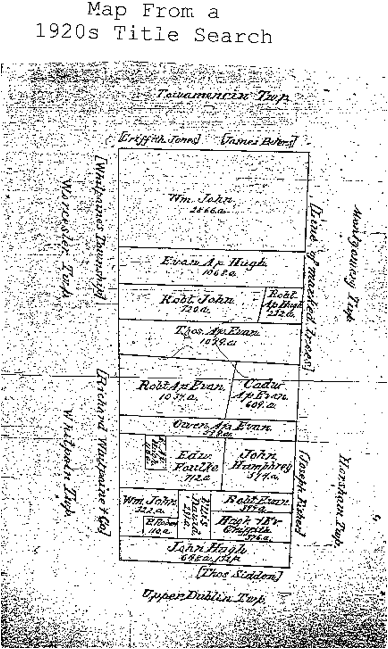 Map From a
1920s Title Search
Towamencin Twp
[Griffith Jones] [James Peters]
[Whitpaines Township]
Worcester Twp
Wm. John
2866.a.
[Line of marked trees]
Montgomery Twp
Evan Ap Hugh
1068.a.
Robt John
720.a.
Robt
Ap Hugh
232.a.
Thos. Ap Evan
1049.a.
Robt Ap Evan
1034.a.
Cadw
Ap Evan
609.a.
Owen Ap Evan
[Richard Whitpaine & Co]
Whitpain Twp
Edw
Foulke
712.a.
John
Humphrey
574.a.
Horsham Twp
Wm John
322.a.
Robt Evan
Hugh
Griffith
376.a.
110.a.
John Hugh
648.a.
[Thos Sidden]
Upper Dublin Twp.